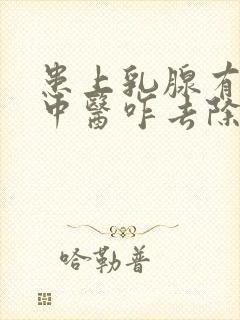 患上乳腺有
中醫咋去除
哈勒普